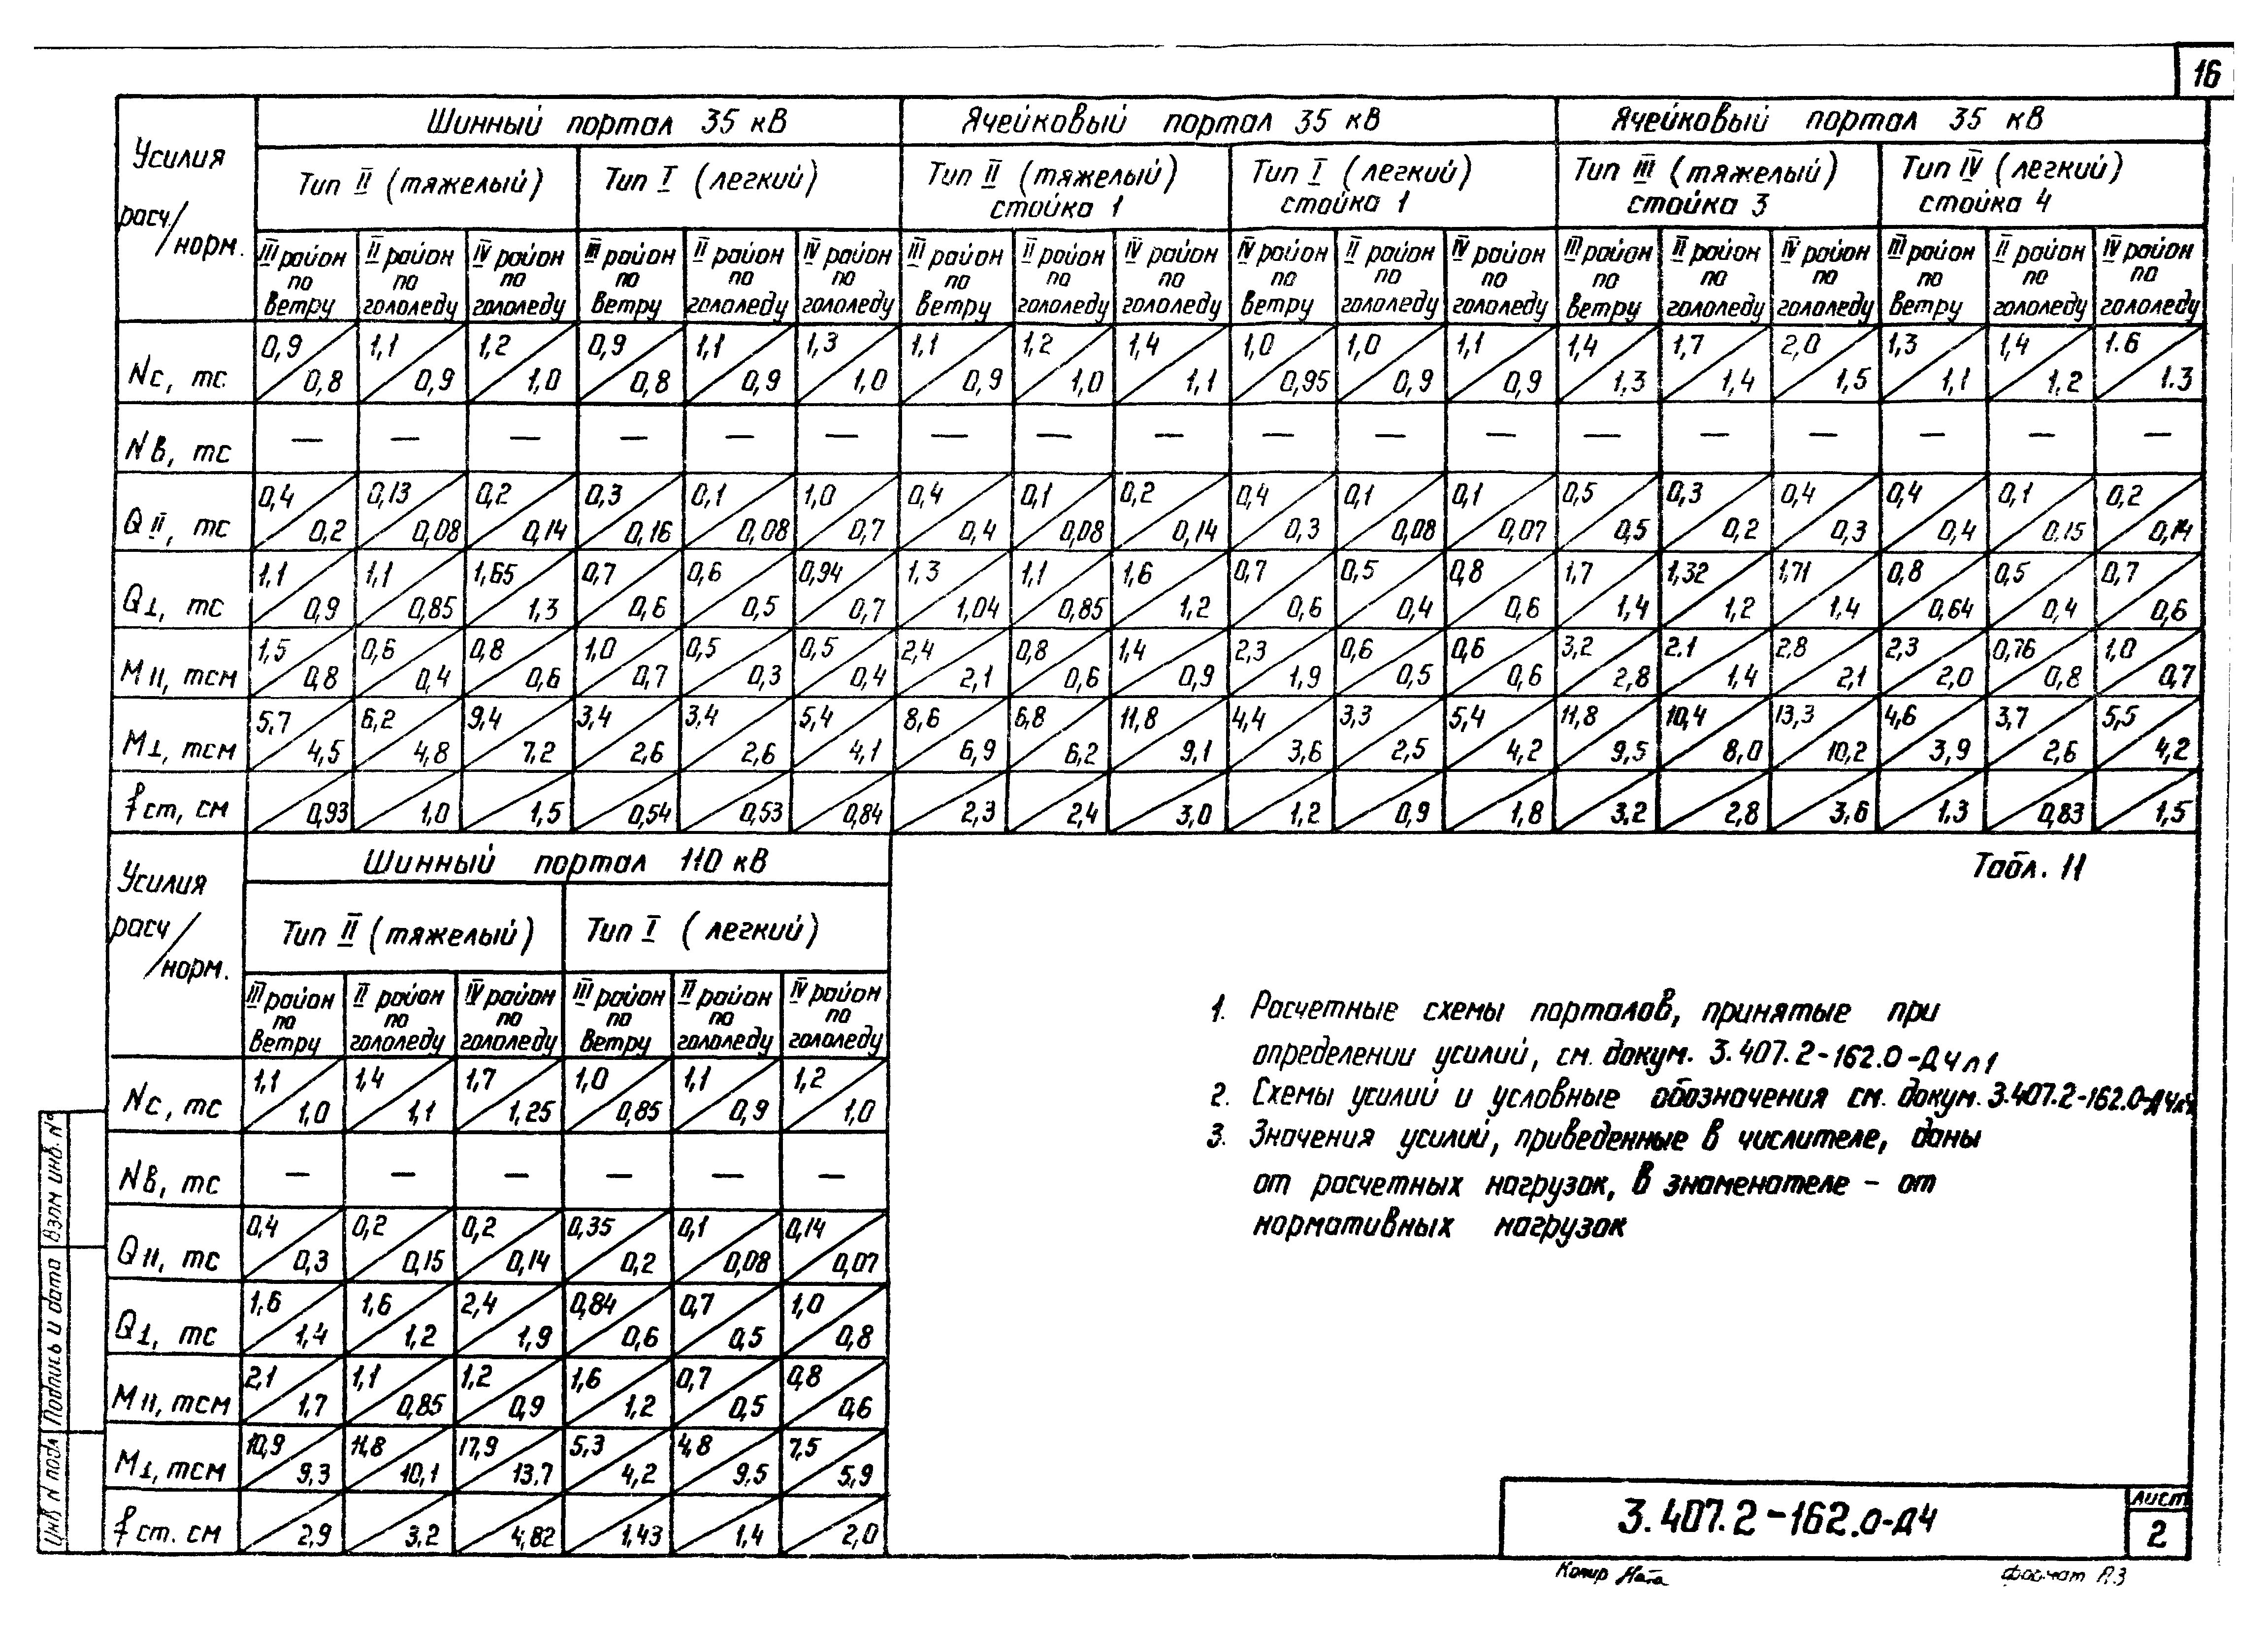 16
Усилия расч/норм. Шинный портал 35 кВ Ячейковый портал 35 кВ Ячейковый портал 35 кВ
Тип II (тяжелый) Тип I (легкий) Тип II (тяжелый) стойка 1 Тип I (легкий) стойка 1 Тип III (тяжелый) стойка 3 Тип IV (легкий) стойка 4
III район по ветру II район по гололеду IV район по гололеду III район по ветру II район по гололеду IV район по гололеду III район по ветру II район по гололеду IV район по гололеду IV район по ветру II район по гололеду IV район по гололеду III район по ветру II район по гололеду IV район по гололеду III район по ветру II район по гололеду IV район по гололеду
Nс, тс 0,9/0,8 1,1/0,9 1,2/1,0 0,9/0,8 1,1/0,9 1,3/1,0 1,1/0,9 1,2/1,0 1,4/1,1 1,0/0,95 1,0/0,9 1,1/0,9 1,4/1,3 1,7/1,4 2,0/1,5 1,3/1,1 1,4/1,2 1.6/1.3
Nв, тс — — — — — — — — — — — — — — — — — —
Q II, тс 0,4/0,2 0,13/0,08 0,2/0,14 0,3/0,16 0,1/0,08 1,0/0,7 0,4/0,4 0,1/0,08 0,2/0,14 0,4/0,3 0,1/0,08 0,1/0,07 0,5/0,5 0,3/0,2 0,4/0,3 0,4/0,4 0,1/0,15 0,2/0,14
Q⊥, тс 1,1/0,9 1,1/0,85 1,65/1,3 0,7/0,6 0,6/0,5 0,94/0,7 1,3/1,04 1,1/0,85 1,6/1,2 0,7/0,6 0,5/0,4 0,8/0,6 1,7/1,4 1,32/1,2 1,71/1,4 0,8/0,64 0,5/0,4 0,7/0,6
М II, тсм 1,5/0,8 0,6/0,4 0,8/0,6 1,0/0,7 0,5/0,3 0,5/0,4 2,4/2,1 0,8/0,6 1,4/0,9 2,3/1,9 0,6/0,5 0,6/0,6 3,2/2,8 2,1/1,4 2,8/2,1 2,3/2,0 0,76/0,8 1,0/0,7
М⊥, тсм 5,7/4,5 6,2/4,8 9,4/7,2 3,4/2,6 3,4/2,6 5,4/4,1 8,6/6,9 6,8/6,2 11,8/9,1 4,4/3,6 3,3/2,5 5,4/4,2 11,8/9,5 10,4/8,0 13,3/10,2 4,6/3,9 3,7/2,6 5,5/4,2
f ст, см /0,93 /1,0 /1,5 /0,54 /0,53 /0,84 /2,3 /2,4 /3,0 /1,2 /0,9 /1,8 /3,2 /2,8 /3,6 /1,3 /0,83 /1,5
Табл. 11
Усилия расч/норм. Шинный портал 110 кВ
Тип II (тяжелый) Тип I (легкий)
III район по ветру II район по гололеду IV район по гололеду III район по ветру II район по гололеду IV район по гололеду
Nс, тс 1,1/1,0 1,4/1,1 1,7/1,25 1,0/0,85 1,1/0,9 1,2/1,0
Nв, тс — — — — — —
Q II, тс 0,4/0,3 0,2/0,15 0,2/0,14 0,35/0,2 0,1/0,08 0,14/0,07
Q⊥, тс 1,6/1,4 1,6/1,2 2,4/1,9 0,84/0,6 0,7/0,5 1,0/0,8
М II, тсм 2,1/1,7 1,1/0,85 1,2/0,9 1,6/1,2 0,7/0,5 0,8/0,6
М⊥, тсм 10,9/9,3 11,8/10,1 17,9/13,7 5,3/4,2 4,8/9,5 7,5/5,9
f ст. см /2,9 /3,2 /4,82 /1,43 /1,4 /2,0
1. Расчетные схемы порталов, принятые при
определении усилий, см. докум. 3.407.2-162.0-Д4 л1
2. Схемы усилий и условные обозначения см. докум. 3.407.2-162.0-Д4
3. Значения усилий, приведенные в числителе, даны
от расчетных нагрузок, в знаменателе – от
нормативных нагрузок
3.407.2-162.0-Д4
Лист
2
Копир Ната
формат А3
Инв N подл
Подпись и дата
Взам инв. N°